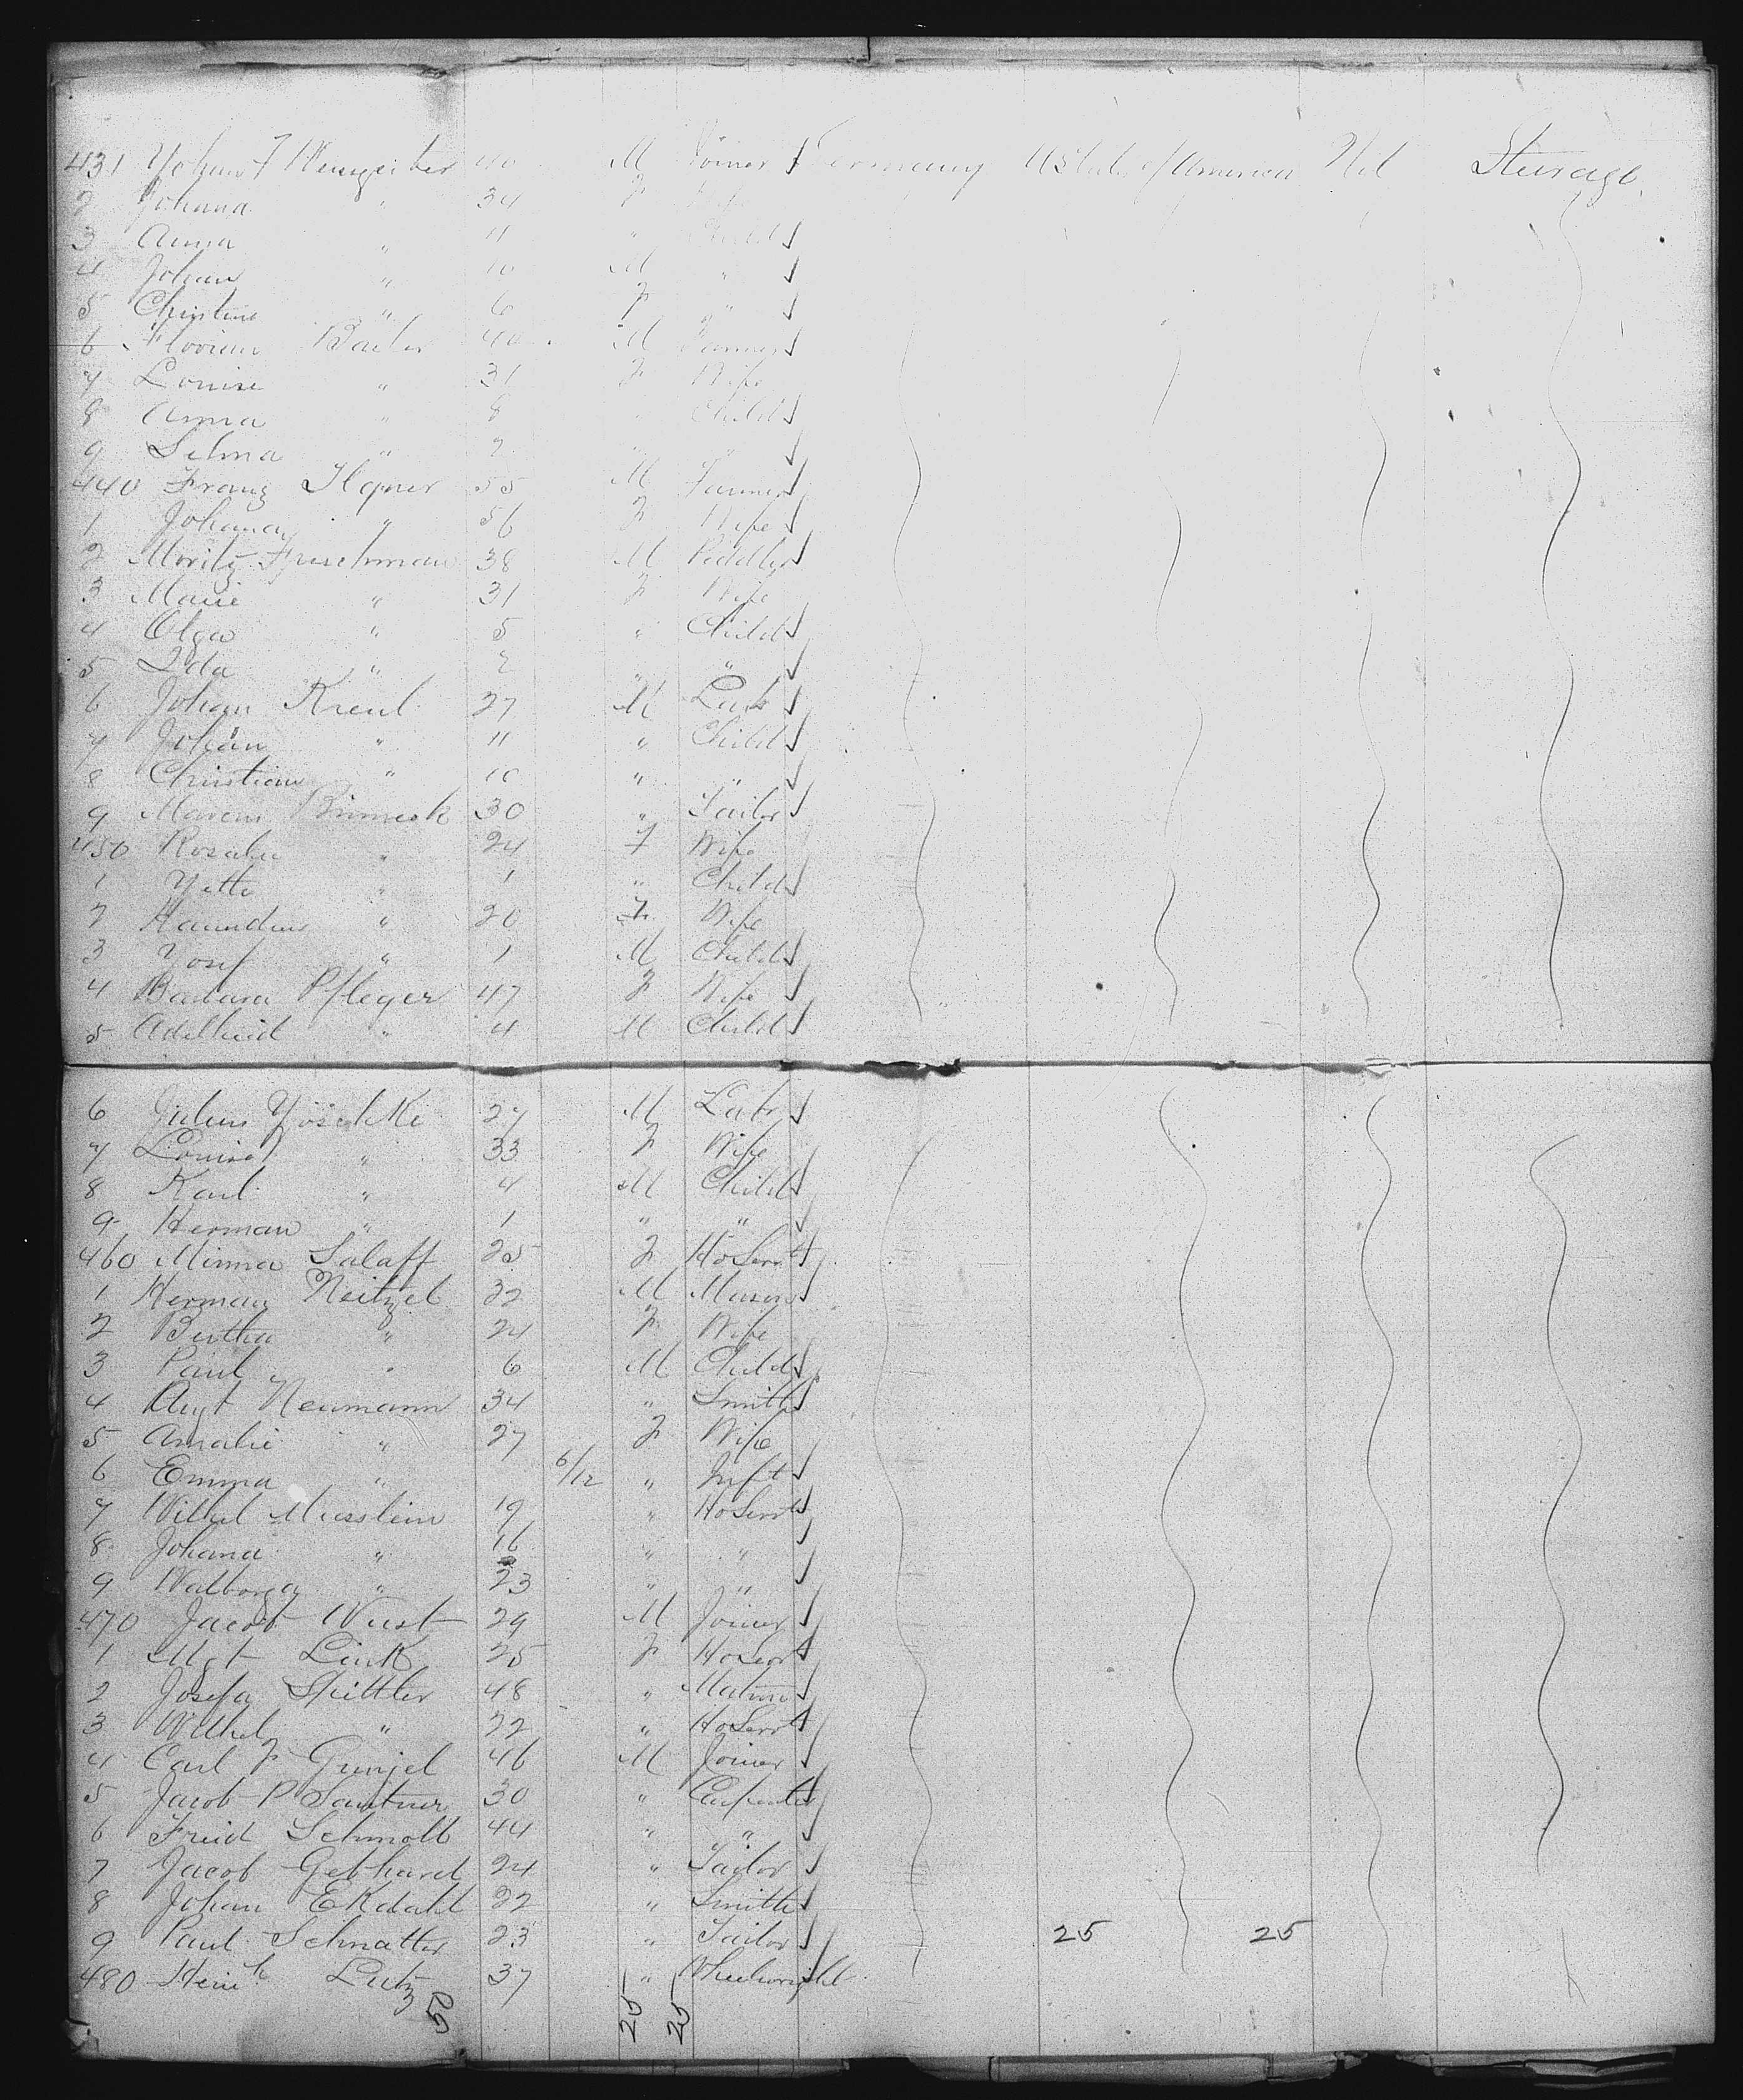 431 Johan F 40 M Joiner Germany U States of America Nil Steerage
2 Johana " 34 F
3 Anna " 11 " Child
4 Johan " 10 M "
5 Christine " 6 F "
6 Florian Bailer 40 M Farmer
7 Louise " 31 F Wife
8 Anna " 8 " Child
9 Selma " 2 " "
440 Franz Ilgner 55 M Farmer
1 Johana " 56 F Wife
2 Moritz 38 M Peddler
3 Marie " 31 F Wife
4 Olga " 5 " Child
5 Ida " 2 " "
6 Johan Kreul 27 M Labr
7 Johan " 11 " Child
8 Christian " 10 " "
9 Marcus 30 " Tailor
450 Rosalie " 24 F Wife
1 Yette " 1 " Child
2 " 20 F Wife
3 Josef " 1 M Child
4 Barbara Pfleger 47 F Wife
5 Adelheid " 4 M Child
6 Julius Jöschke 27 M Labr
7 Louise " 33 F Wife
8 Karl " 4 M Child
9 Herman " 1 " "
460 Minna Salaff 25 F HoServt
1 Herman Neitzel 32 M Mason
2 Bertha " 24 F Wife
3 Paul " 6 M Child
4 Augt Neumann 34 " Smith
5 Amalie " 27 F Wife
6 Emma " 6/12 " Inft
7 Wilhel 19 " HoServt
8 Johana " 16 " "
9 Walborga " 23 " "
470 Jacob Wust 29 M Joiner
1 Mgt Link 25 F HoServt
2 Josefa Spittler 48 " Matron
3 Wilhel " 22 " HoServt
4 Carl F 46 M Joiner
5 Jacob P Sautner 30 " Carpenter
6 Freid Schmolb 44 " "
7 Jacob Gebhard 24 " Tailor
8 Johan Ekdahl 22 " Smith
9 Paul Schnatter 23 " Tailor 25 25
480 Heinh Lutz 37 " Wheelwright
50 25 25